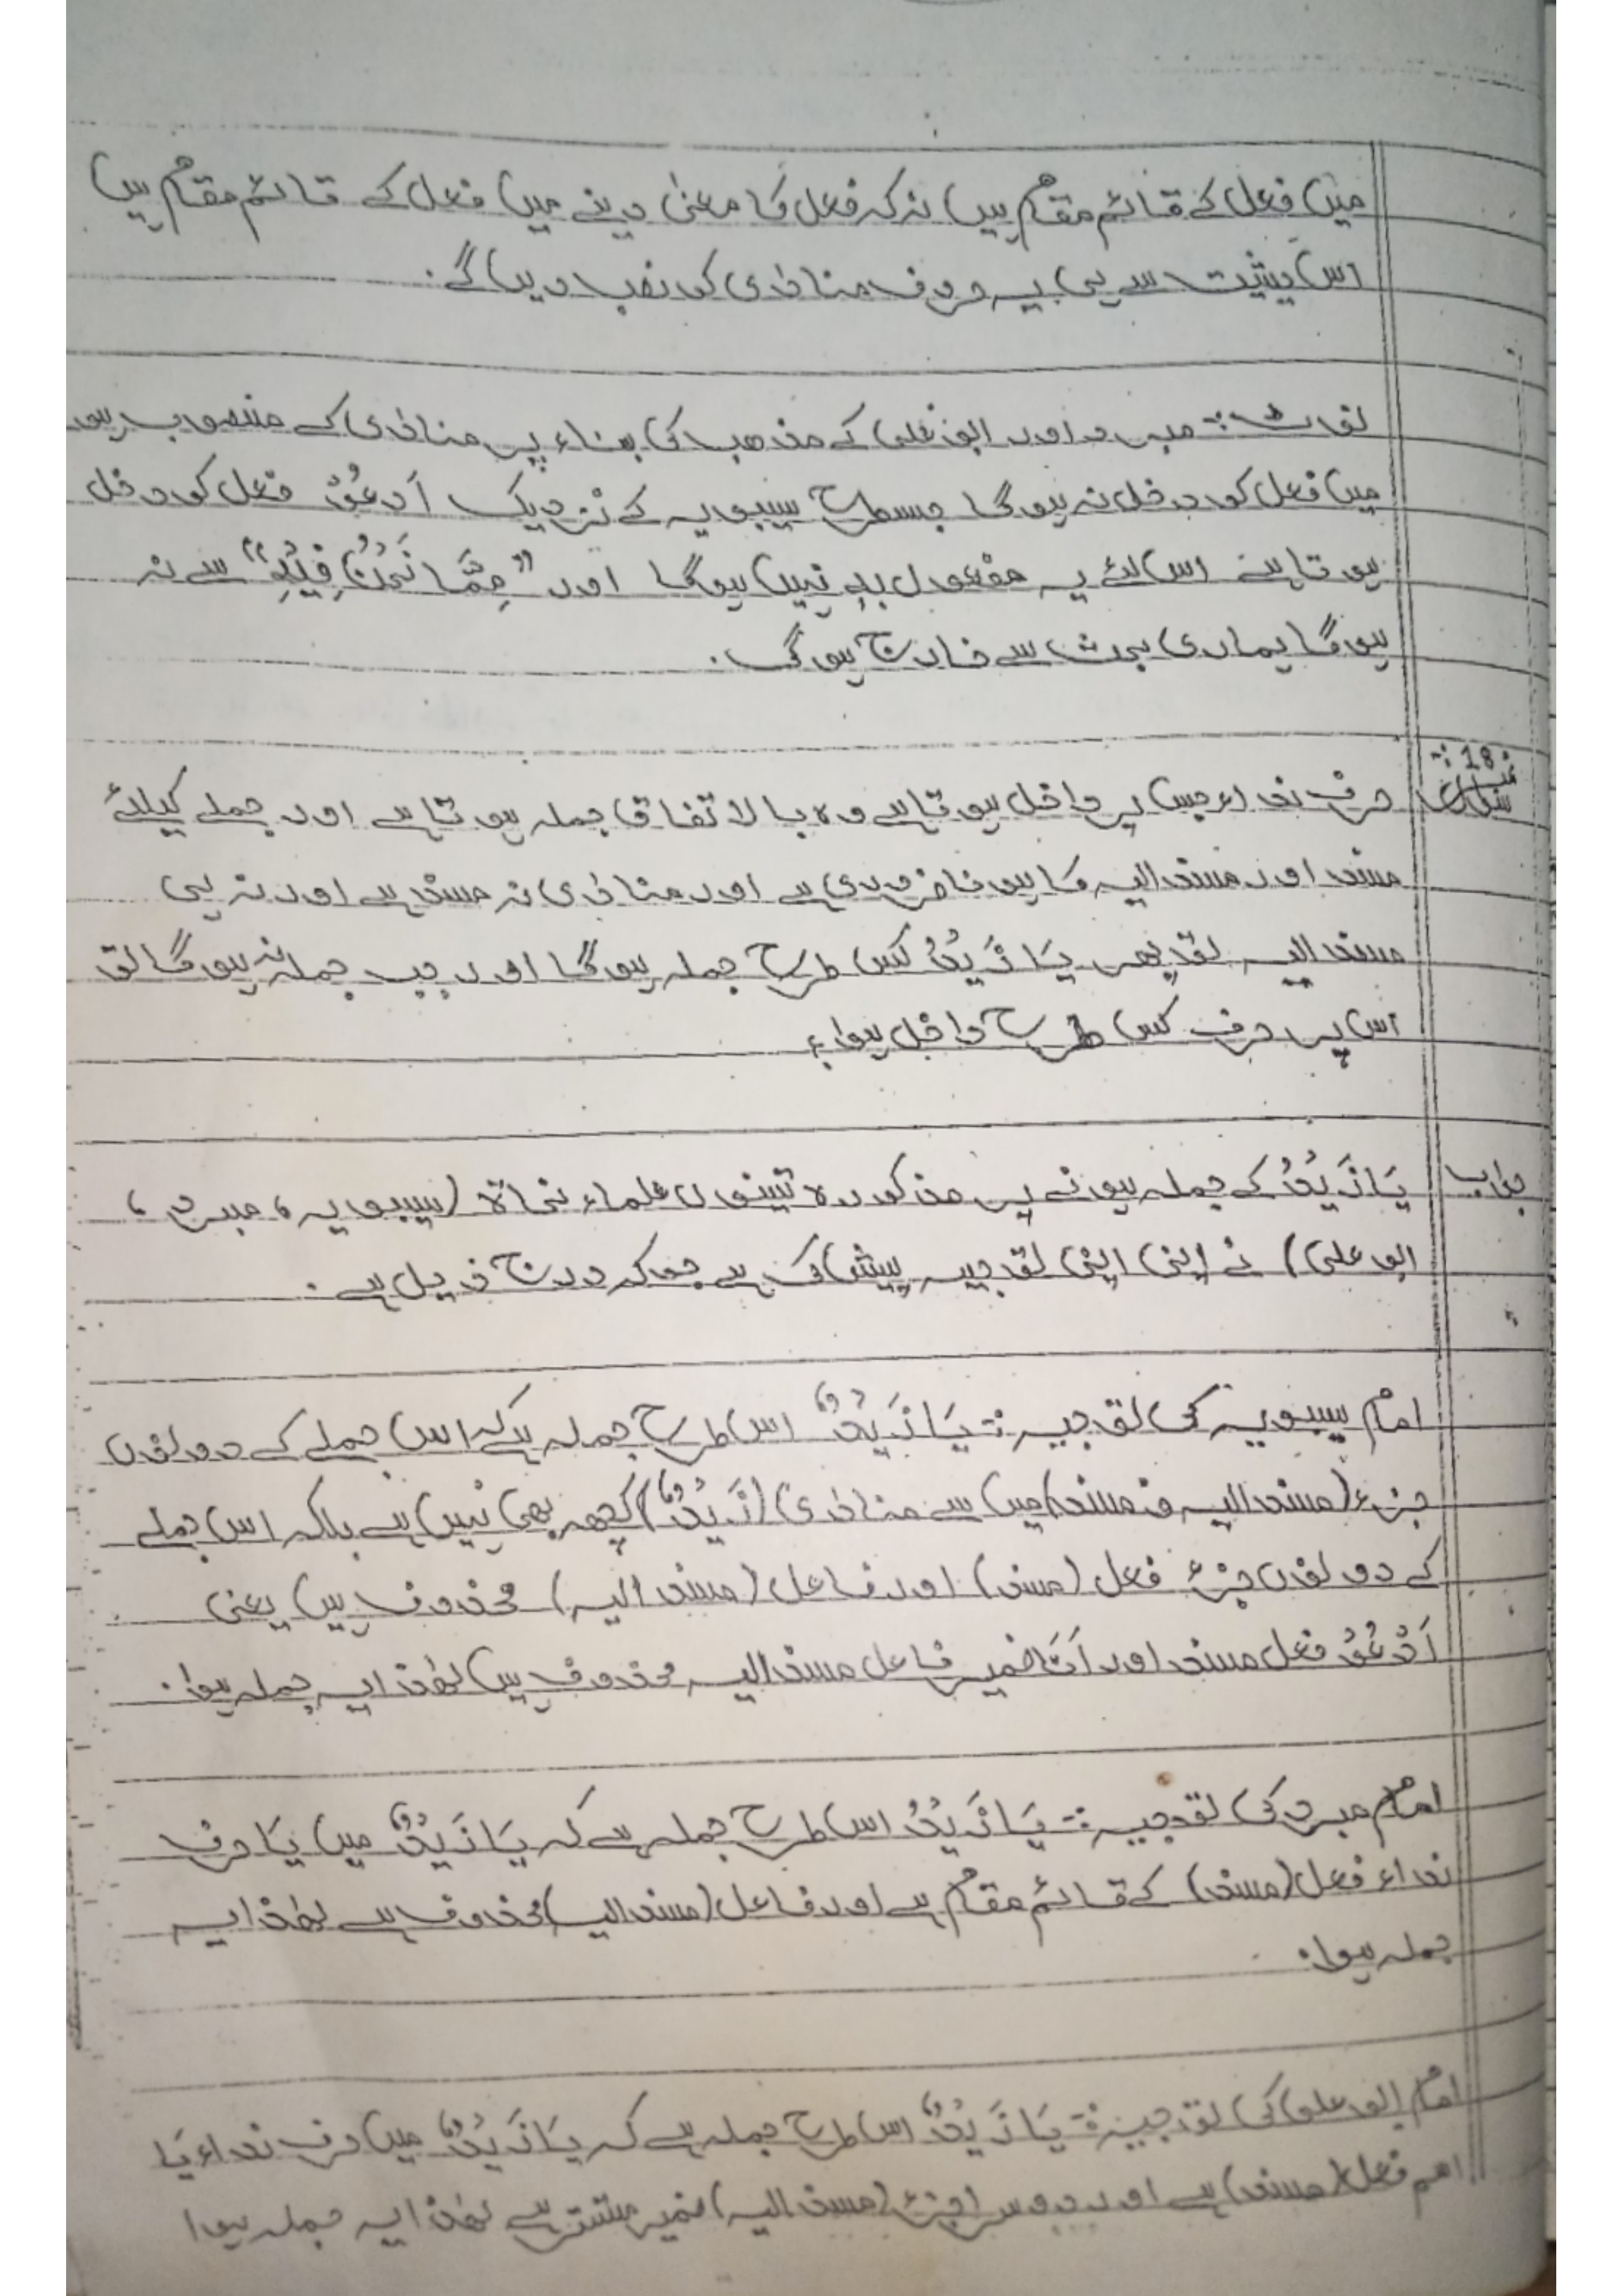 میں فعل کے قائم مقام ہیں نہ کہ فعل کا معنیٰ دینے میں فعل کے قائم مقام ہیں
اس حیثیت سے ہی یہ حروف منادٰی کو نصب دیں گے۔
نوٹ:- مبرد اور ابو علی کے مذھب کی بناء پر منادٰی کے منصوب ہونے
میں فعل کو دخل نہ ہوگا جسطرح سیبویہ کے نزدیک اَدعُوْ فعل کو دخل
ہوتا ہے اس لئے یہ مفعول بہٖ نہیں ہوگا اور "مِمَّا نَحْنُ فِیْہِ" سے نہ
ہوگا ہماری بحث سے خارج ہوگی۔
سوال نمبر 18:-
حرفِ نداء جس پر داخل ہوتا ہے وہ بالاتفاق جملہ ہوتا ہے اور جملے کیلئے
مسند اور مسندالیہ کا ہونا ضروری ہے اور منادٰی نہ مسند ہے اور نہ ہی
مسندالیہ تو پھر یَا زَیْدُ کس طرح جملہ ہوگا اور جب جملہ نہ ہوگا تو
اس پر حرف کس طرح داخل ہوا؟
جواب
یَا زَیْدُ کے جملہ ہونے پر مذکورہ تینوں علماء نحاۃ (سیبویہ، مبرد،
ابو علی) نے اپنی اپنی توجیہ پیش کی ہے جو کہ درج ذیل ہے۔
امام سیبویہ کی توجیہ:- یَا زَیْدُ اس طرح جملہ ہے کہ اس جملے کے دونوں
جزء (مسندالیہ و مسند) میں سے منادٰی (زَیْدُ) کچھ بھی نہیں ہے بلکہ اس جملے
کے دونوں جزء فعل (مسند) اور فاعل (مسندالیہ) محذوف ہیں یعنی
اَدْعُوْ فعل مسند اور اَنَا ضمیر فاعل مسندالیہ محذوف ہیں لھٰذا یہ جملہ ہوا۔
امام مبرد کی توجیہ:- یَا زَیْدُ اس طرح جملہ ہے کہ یَا زَیْدُ میں یَا حرف
نداء فعل (مسند) کے قائم مقام ہے اور فاعل (مسندالیہ) محذوف ہے لھٰذا یہ
جملہ ہوا۔
امام ابو علی کی توجیہ:- یَا زَیْدُ اس طرح جملہ ہے کہ یَا زَیْدُ میں حرف نداء یَا
اسم فعل (مسند) ہے اور دوسرا جزء (مسندالیہ) ضمیر مستتر ہے لھٰذا یہ جملہ ہوا